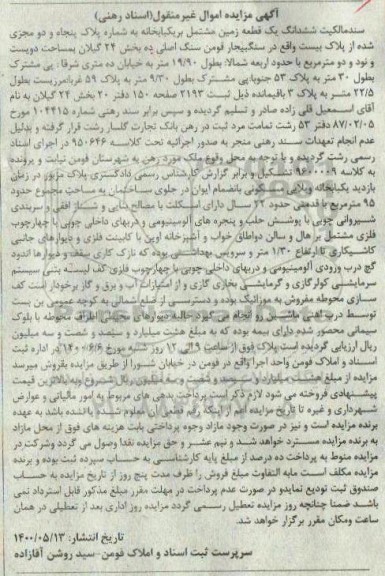 آگهی مزایده اموال غیرمنقول(اسناد رهنی)
سندمالکیت ششدانگ یک قطعه زمین مشتمل بریکبابخانه به شماره پلاک پنجاه و دو مجزی
شده از پلاک بیست واقع در سنگبیجار فومن سنگ اصلی ده بخش ۲۴ گیلان بمساحت دویست
و نود و دو مترمربع با حدود اربعه شمالا: بطول ۱۹/۹۰ متر به خیابان ده متری شرقا: پی مشترک
بطول ۳۰ متر به پلاک ۵۳ جنوبا:پی مشترک بطول ۹/۳۰ متر به پلاک ۵۹ غربا:مرزیست بطول
۲۲/۵ متر به پلاک ۳ باقیمانده ذیل ثبت ۲۱۹۳ صفحه ۱۵۰ دفتر ۲۰ بخش ۲۴ گیلان به نام
آقای اسمعیل قلی زاده صادر و تسلیم گردیده و سپس برابر سند رهنی شماره ۱۰۴۴۱۵ مورخ
۸۷/۰۲/۰۵ دفتر ۵۳ رشت تمامت مورد ثبت در رهن بانک تجارت گلسار رشت قرار گرفته و بدلیل
عدم انجام تعهدات سند رهنی منجر به صدور اجرائیه تحت کلاسه ۹۵۰۶۴۶ در اجرای اسناد
رسمی رشت گردیده و با توجه به محل وقوع ملک مورد رهن به شهرستان فومن نیابت و پرونده
به کلاسه ۹۶۰۰۰۰۹ تشکیل و برابر گزارش کارشناس رسمی دادگستری پلاک مزبور در زمان
بازدید یکبابخانه ویلایی مسکونی بانضمام ایوان در جلوی ساختمان به مساحت مجموع حدود
۹۵ مترمربع با قدمتی حدود ۲۲ سال دارای اسکلت با مصالح بنایی و شناژ افقی و سربندی
شیروانی چوبی با پوشش حلب و پنجره های آلومینیومی و دربهای داخلی چوبی با چهارچوب
فلزی مشتمل بر هال و سالن دواطاق خواب و آشپزخانه اوپن با کابینت فلزی و دیوارهای جانبی
کاشیکاری تا ارتفاع ۱/۳۰ متر و سرویس بهداشتی بوده که نازک کاری سقف و دیوارها اندود
گچ درب ورودی آلومینیومی و دربهای داخلی چوبی با چهارچوب فلزی کف لیسه بتنی سیستم
سرمایشی کولرگازی و گرمایشی بخاری گازی و از امتیازات آب و برق و گاز برخوردار است کف
سازی محوطه مفروش به موزائیک بوده و دسترسی از ضلع شمالی به کوچه عمومی بن بست
توسط درب آهنی ماشین رو انجام می گیرد حالیه دیوارهای محیطی اطراف محوطه با بلوک
سیمانی محصور شده دارای بیمه بوده که به مبلغ هشت میلیارد و سیصد و شصت و سه میلیون
ریال ارزیابی گردیده است پلاک فوق از ساعت ۹ الی ۱۲ روز شنبه مورخ ۱۴۰۰/۶/۶ در اداره ثبت
اسناد و املاک فومن واحد اجرا واقع در فومن در خیابان شورا از طریق مزایده بفروش میرسد
مزایده از مبلغ هشت میلیارد و سیصد و شصت و سه میلیون ریال شروع و به بالاترین قیمت
پیشنهادی فروخته می شود لازم ذکر است پرداخت بدهی های مربوط به امور مالیاتی و عوارض
شهرداری و غیره تا تاریخ مزایده اعم از اینکه رقم قطعی آن معلوم شده یا نشده باشد به عهده
برنده مزایده است و نیز در صورت وجود مازاد وجوه پرداختی بابت هزینه های فوق از محل مازاد
به برنده مزایده مسترد خواهد شد و نیم عشر و حق مزایده نقدا وصول می گردد وشرکت در
مزایده منوط به پرداخت ده درصد از مبلغ پایه کارشناسی به حساب سپرده ثبت بوده و برنده
مزایده مکلف است مابه التفاوت مبلغ فروش را ظرف مدت پنج روز از تاریخ مزایده به حساب
صندوق ثبت تودیع نمایدو در صورت عدم پرداخت در مهلت مقرر مبلغ مذکور قابل استرداد نمی
باشد ضمنا چنانچه روز مزایده تعطیل رسمی گردد مزایده روز اداری بعد از تعطیلی در همان
ساعت ومکان مقرر برگزار خواهد شد.
تاریخ انتشار: ۱۴۰۰/۰۵/۱۳
سرپرست ثبت اسناد و املاک فومن-سید روشن آقازاده